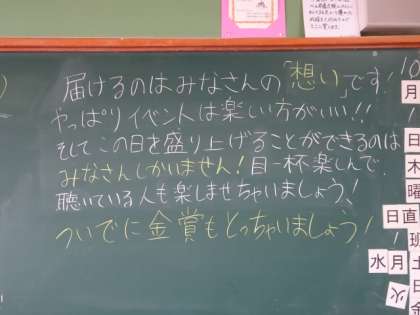 届けるのはみなさんの「想い」です!
やっぱりイベントは楽しい方がいい!!
そしてこの日を盛り上げることができるのは
みなさんしかいません!目一杯楽しんで、
聴いている人も楽しませちゃいましょう!
ついでに金賞もとっちゃいましょう!
10
月
日
木
曜
日直
班
水
月
土
火
日
金